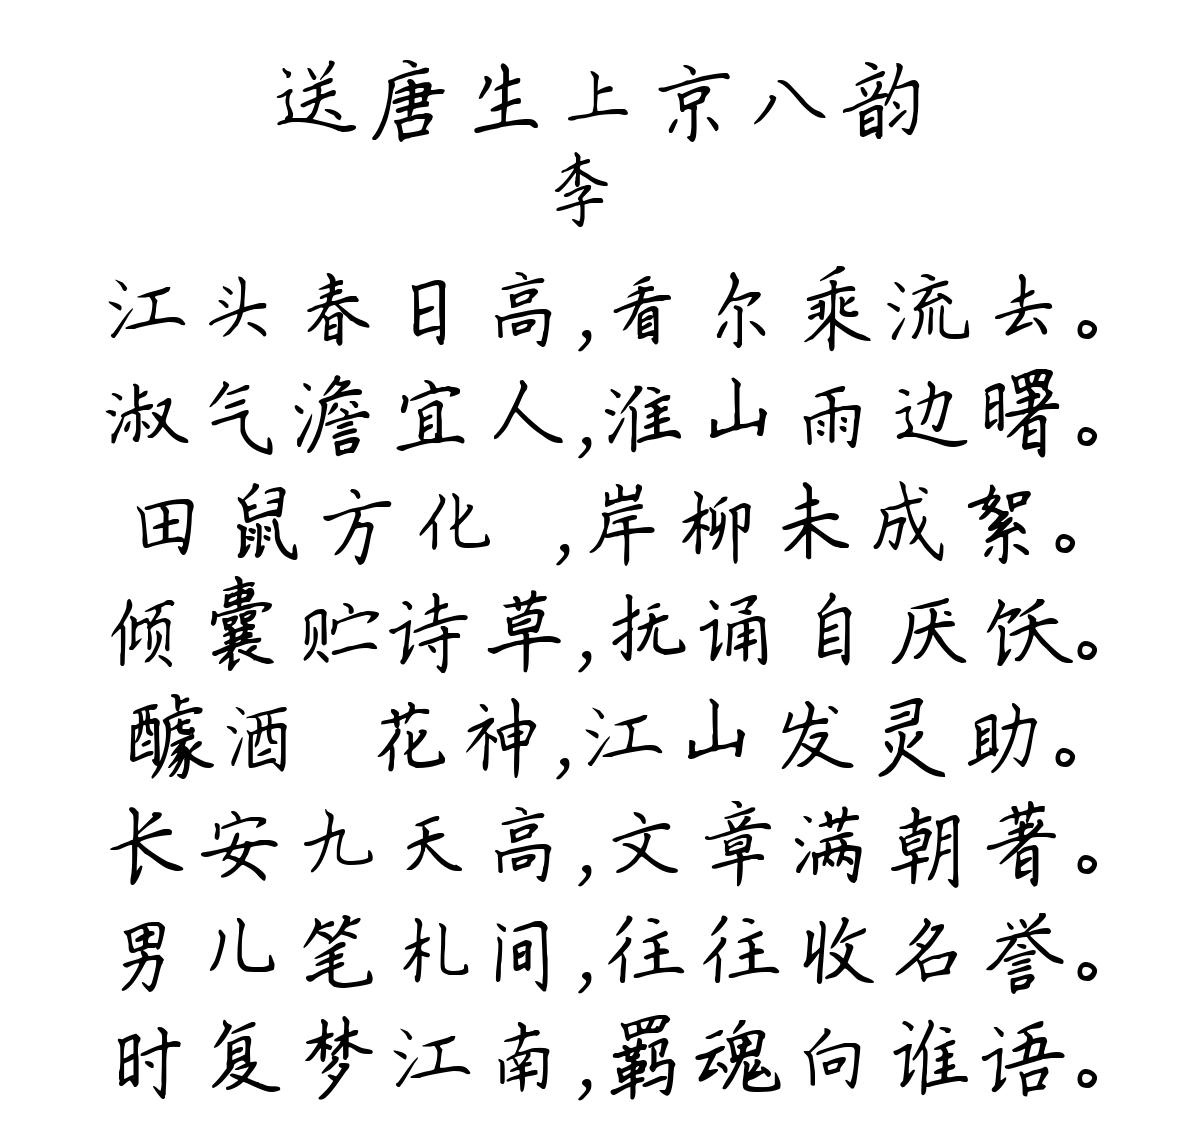 送唐生上京八韵
李
江头春日高,看尔乘流去。
淑气澹宜人,淮山雨边曙。
田鼠方化 ,岸柳未成絮。
倾囊贮诗草,抚诵自厌饫。
醵酒 花神,江山发灵助。
长安九天高,文章满朝著。
男儿笔札间,往往收名誉。
时复梦江南,羁魂向谁语。